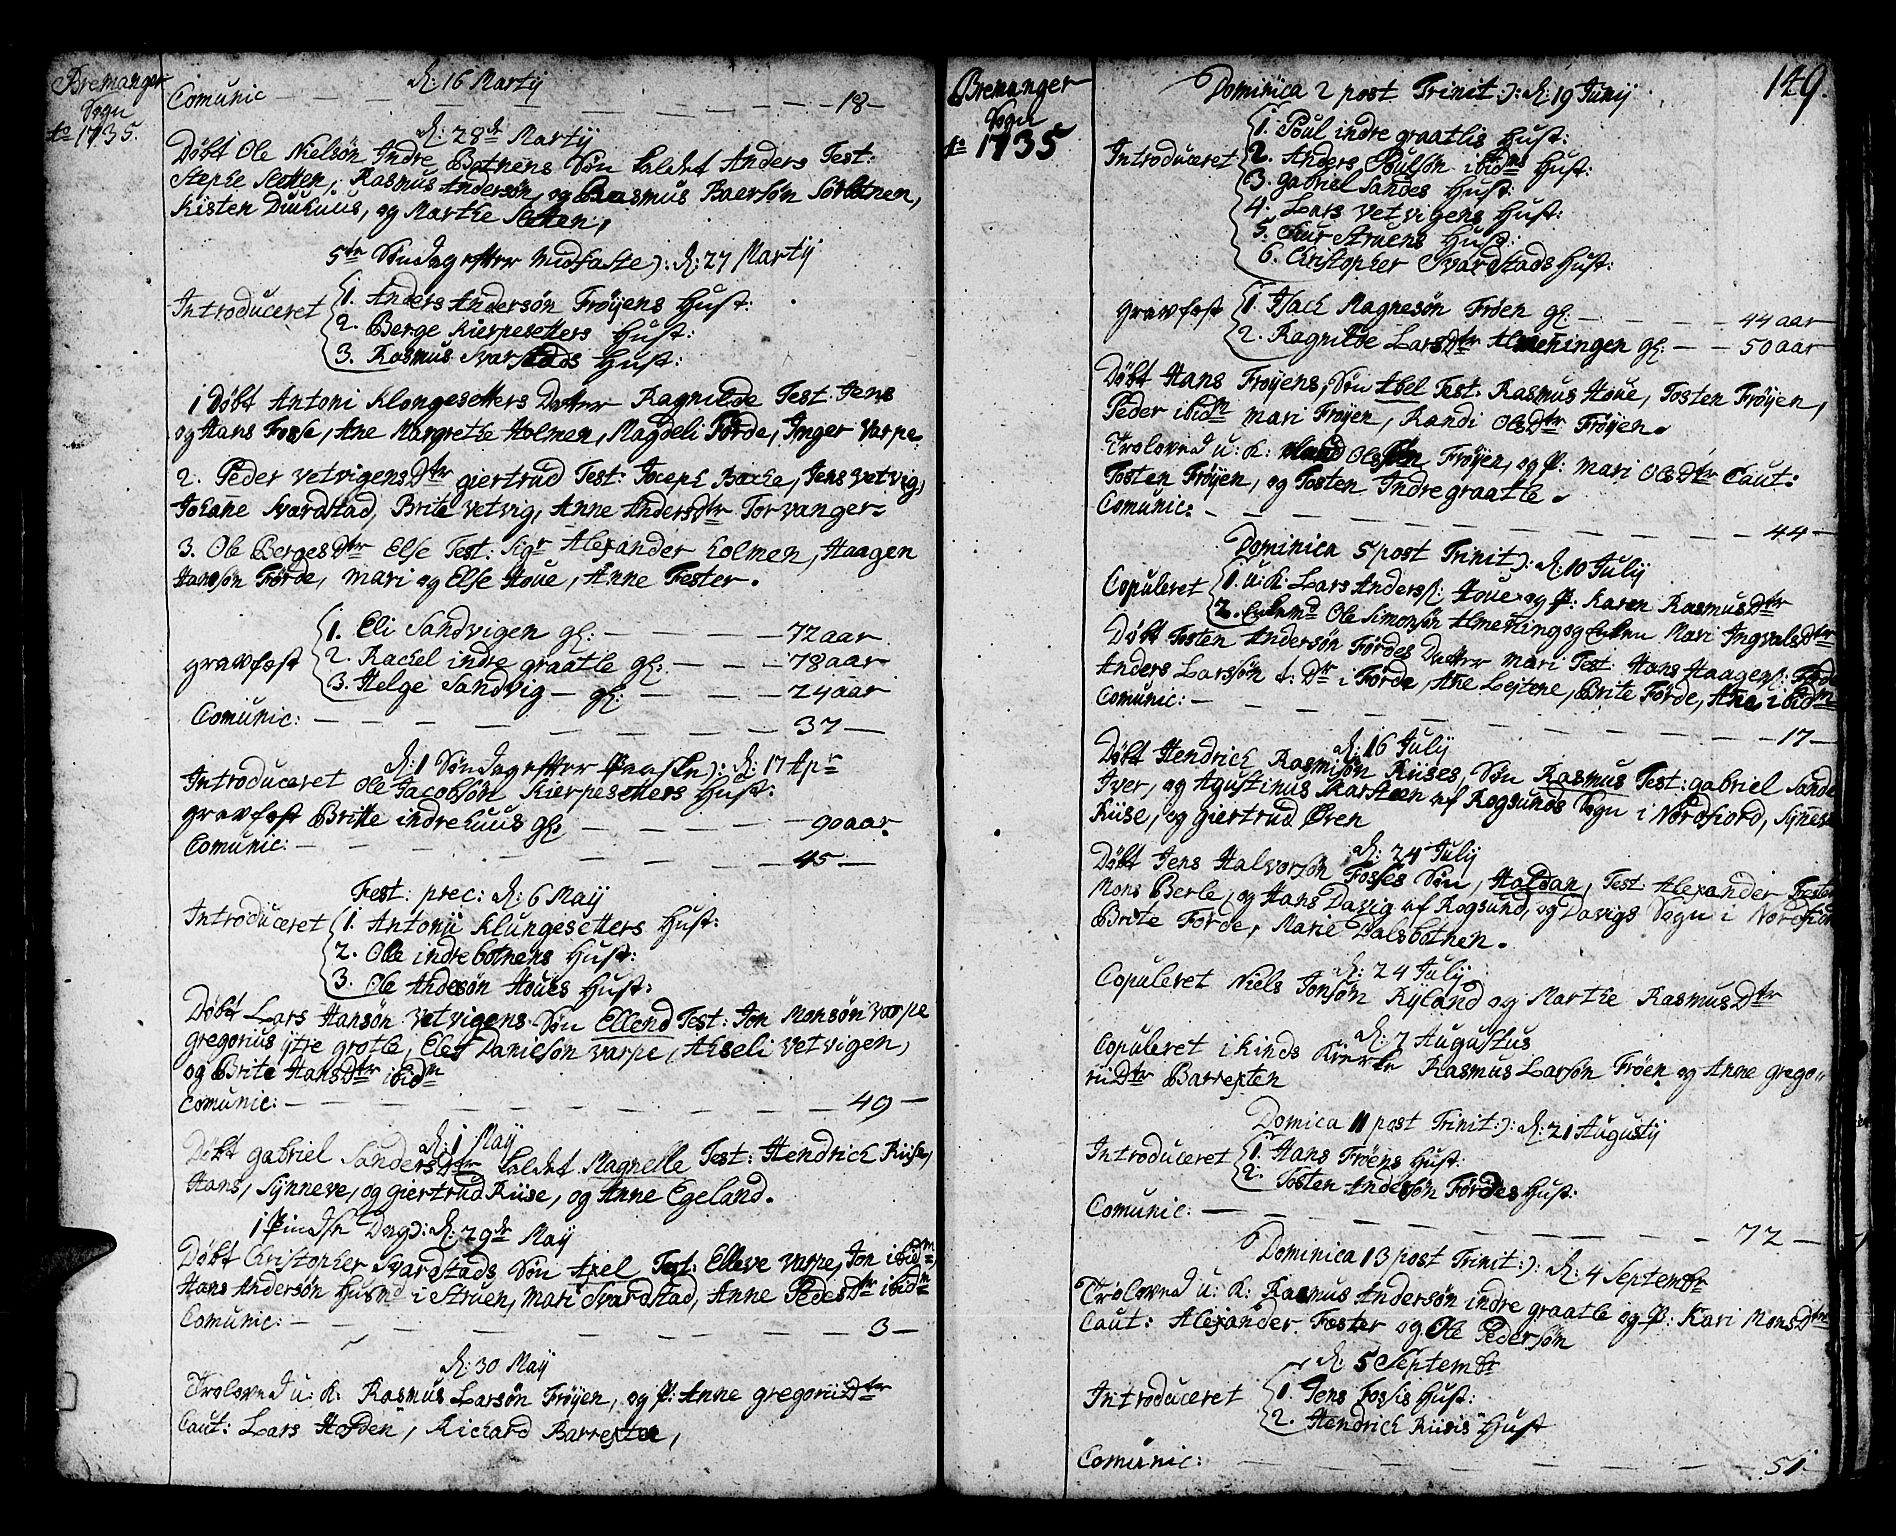 Bremanger
Sogn
Ao 1735.
d: 16 Martij
Comunic — — — 18 —
d: 28de Martij
Døbt Ole Nielsøn Indre Botnens Søn kaldet Anders Test:
Stephe Setten, Rasmus Andersøn, og Rasmus Baersøn Sørbotnen,
Kisten Duehuus, og Marthe Setten,
5te Søndag efter Midfaste): d: 27 Martij
Introduceret 1. Anders Andersøn Frøyens Hust:
2. Berge Kierpesetters Hust:
3. Rasmus Svarstads Hust:
1 Døbt Antoni Klongesetters Datter Ragnilde Test: Jens
og Hans Fosse, Ane Margrethe Holmen, Magdeli Førde, Inger Varpe.
2. Peder Vetvigens Dtr giertrud Test: Joseph Bache, Jens Vetvig,
Johane Svardstad, Brite Vetvig, Anne Andersdtr Torvanger.
3. Ole Berges Dtr Else Test: Sigr Alexander Holmen, Haagen
Hansøn Førde, Mari og Else Houe, Anne Fester.
1. Eli Sandvigen gl: — — — 72 aar
gravfæst 2. Rachel indre graatle gl: — — — 78 aar
3. Helge Sandvig — gl: — — — 24 aar
Comunic: — — — 37 —
d: 1 Søndag efter Paaske): d: 17 Apr
Introduceret Ole Jacobsøn Kierpesetters Hust:
gravfæst Britte indrehuus gl: — — — 90 aar.
Comunic: — — — 45 —
Fest: prec: d: 6 Maij
Introduceret 1. Antonij Klungesetters Hust:
2. Ole indrebotnens Hust:
3. Ole Andersøn Houes Hust:
Døbt Lars Hansøn Vetvigens Søn Ellend Test: Jon Monsøn Varpe
gregorius ytre grotle, Elef Danielsøn Varpe, Akseli Vetvigen,
og Brite Hansdtr ibidm
Comunic: — — — 49 —
d: 1 Maij
Døbt gabriel Sanders Dtr kaldet Magnelle Test: Hendrich Riise,
Hans, Synneve, og giertrud Riise, og Anne Egeland.
1 Pindse Dag): d: 29de Maij
Døbt Christopher Svardstads Søn Axel Test: Elleve Varpe, Jon ibidm
Hans Andersøn Husmd i Struen, Mari Svardstad, Anne Pedersdtr ibidm
Comunic: — — — 3 —
d: 30 Maij
Troloved u: K: Rasmus Larsøn Frøyen, og P: Anne gregorii Dtr
Caut: Lars Holden, Richard Barrexten,
Bremanger
Sogn
Ao 1735
149.
Dominica 2 post Trinit:): d: 19 Junij
Introduceret 1. Poul indre graatlis Hust:
2. Anders Poulsøn ibidms Hust:
3. gabriel Sandes Hust:
4. Lars Vetvigens Hust:
5. Struens Hust:
6. Christopher Svardstads Hust:
gravfæst 1. Isach Magnesøn Frøen gl: — — — 44 aar
2. Ragnilde Larsdtr Almeningen gl: — — 50 aar
Døbt Hans Frøyens, Søn Abel Test: Rasmus Houe, Tosten Frøyen,
Peder ibidm Mari Frøyen, Randi Olsdtr Frøyen.
Troloved u: K: Olsøn Frøyen, og P: Mari Olsdtr Caut:
Tosten Frøyen, og Tosten Indregraatle.
Comunic: — — — 44 —
Dominica 5 post Trinit): d: 10 Julij
Copuleret 1. u: K: Lars Anders: Houe og P: Karen Rasmusdtr
2. Enkemd Ole Simonsøn Almening og Enken Mari Ingvalsdtr
Døbt Tosten Andersøn Førdes Datter Mari Test: Hans Haagens: Førde
Anders Larssøn t: Dr i Førde, Ane Lejtene, Brite Førde, Ane ibidm
Comunic: — — — 17 —
d: 16 Julij
Døbt Hendrich Rasmisøn Riises, Søn Rasmus Test: gabriel Sande
Iver, og Agustinus Skarsteen af Rogsunds Sogn i Nordfiord, Synneve
Riise, og giertrud Øren
d: 24 Julij
Døbt Jens Halvorsøn Fosses Søn, Haldan, Test: Alexander Fester
Mons Berle, og Hans Davig af Rogsund, og Davigs Sogn i Nordfiord
Brite Førde, Marie Dalsbotnen.
d: 24 Julij
Copuleret Niels Jonsøn Ryland og Marthe Rasmusdtr
d: 7 Augustus
Copuleret i Kinds Kierke Rasmus Larsøn Frøen og Anne grego„
rii Dtr Barrexten
Domica 11 post Trinit:): d: 21 Augustij
Introduceret 1. Hans Frøens Hust:
2. Tosten Andersøn Førdes Hust:
Comunic: — — — 72 —
Dominica 13 post Trinit:): d: 4 Septembr
Troloved u: K: Rasmus Andersøn indre graatle og P: Kari Monsdtr
Caut: Alexander Fester og Ole Pedersøn
d: 5 Septembr
Introduceret 1. Jens Fossis Hust:
2. Hendrich Riisis Hust
Comunic: — — — 51